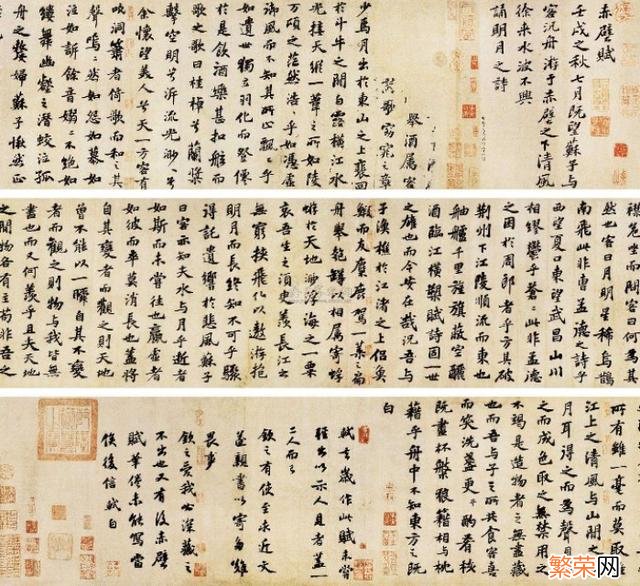 赤壁賦
壬戌之秋七月既望蘇子與
客汎舟游于赤壁之下清風
徐来水波不興
誦明月之詩
舉酒屬客
歌窈窕之章
少焉月出於東山之上裵回
於斗牛之間白露横江水
光接天縱一葦之所如陵
万頃之茫然浩浩乎如馮虚
御風而不知其所止飄飄乎
如遺世獨立羽化而登僊
於是飲酒樂甚扣舷而
歌之歌曰桂棹兮蘭槳
擊空明兮泝流光渺渺兮
余懷望美人兮天一方客有
吹洞簫者倚歌而和之其
聲嗚嗚然如怨如慕如
泣如訴餘音嫋嫋不絶如
縷舞幽壑之潛蛟泣孤
舟之嫠婦蘇子愀然正
襟危坐而問客曰何為其
然也客曰月明星稀烏鵲
南飛此非曹孟德之詩乎
西望夏口東望武昌山川
相繆鬱乎蒼蒼此非孟德
之困於周郎者乎方其破
荊州下江陵順流而東也
舳艫千里旌旗蔽空釃
酒臨江横槊賦詩固一世
之雄也而今安在哉況吾與
子漁樵於江渚之上侣魚
鰕而友麋鹿駕一葉之扁
舟舉匏罇以相屬寄蜉
蝣於天地渺浮海之一粟
哀吾生之須臾羨長江之
無窮挾飛仙以遨游抱
明月而長終知不可乎驟
得託遺響於悲風蘇子
曰客亦知夫水與月乎逝者
如斯而未嘗往也贏虚者
如彼而卒莫消長也蓋將
自其變者而觀之則天地
曾不能以一瞬自其不變
者而觀之則物與我皆無
盡也而又何羨乎且夫天地
之間物各有主苟非吾之
所有雖一毫而莫取惟
江上之清風與山間之明
月耳得之而為聲目遇
之而成色取之無禁用之
不竭是造物者之無盡藏
也而吾與子之所共食客喜
而笑洗盞更酌肴核
既盡杯盤狼藉相與枕
藉乎舟中不知東方之既
白
軾去歲作此賦未嘗
輕出以示人見者蓋一
二人而已
欽之有使至求近文
遂親書以寄多難
畏事
欽之愛我必深藏之
不出也又有後赤壁
賦筆倦未能寫當
俟後信軾白
繁荣网